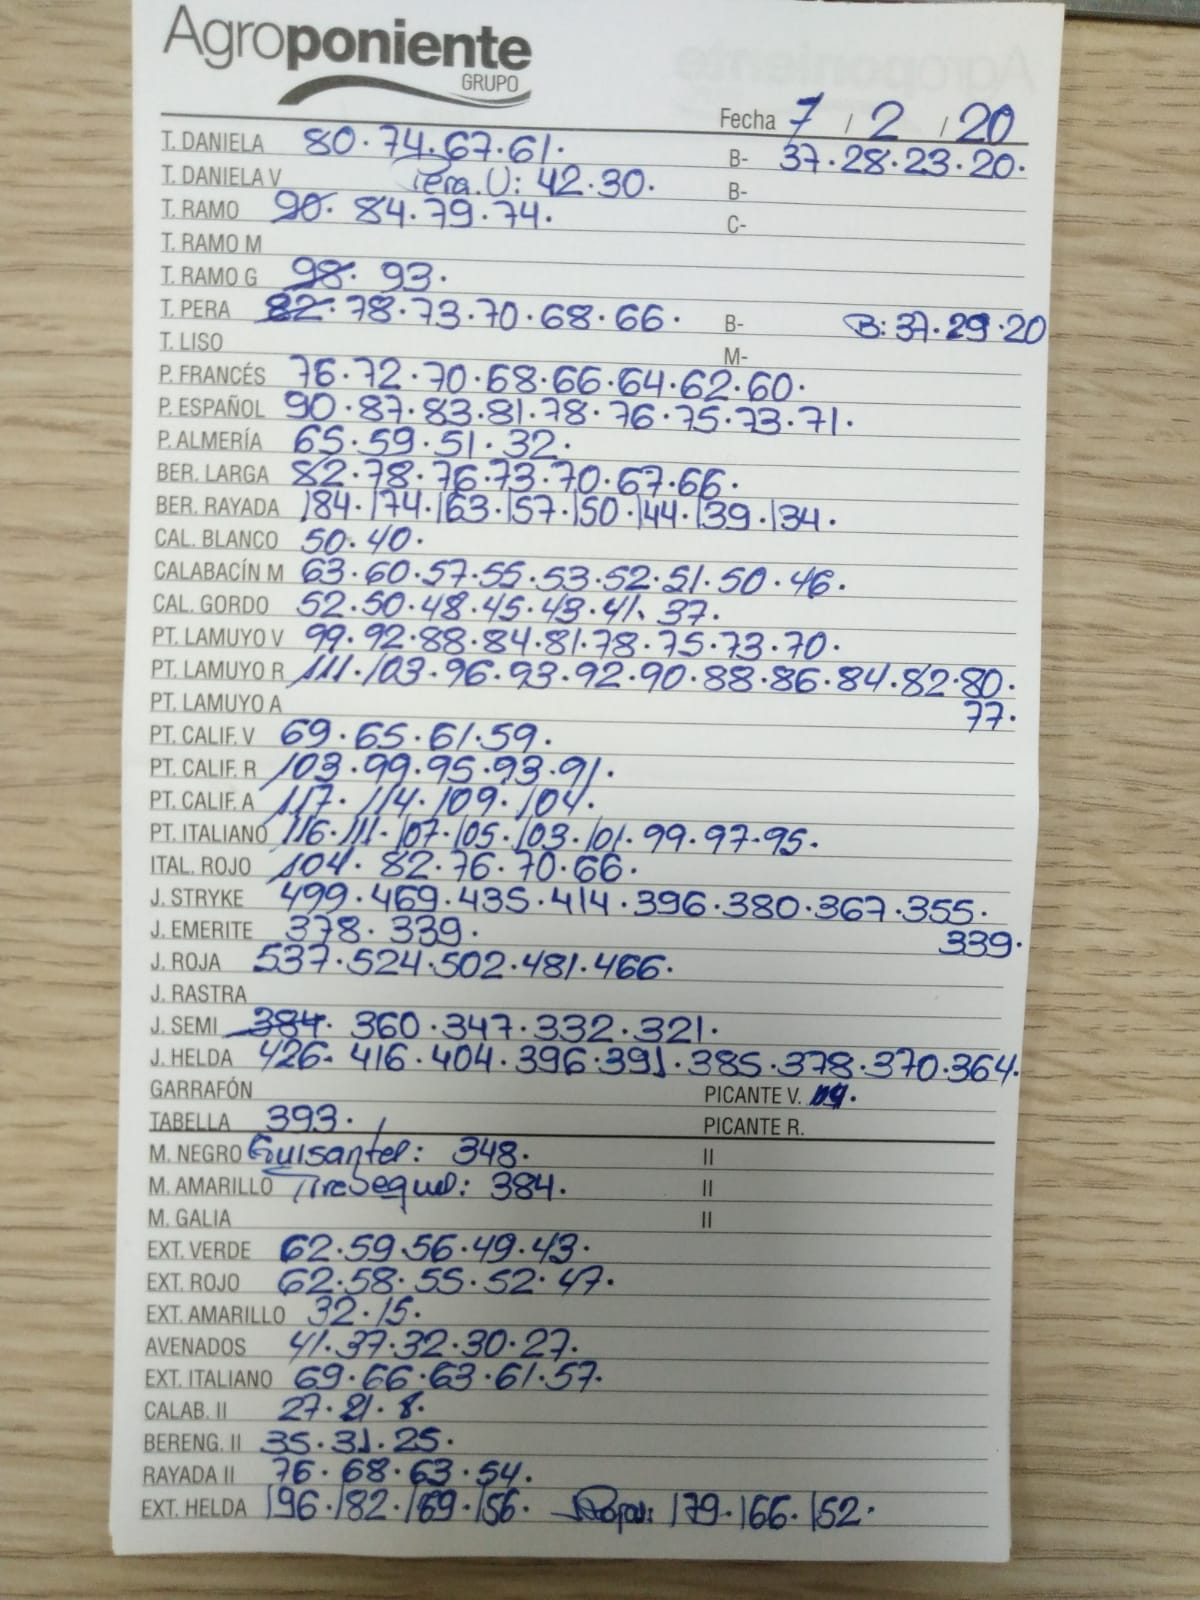 Agroponiente
GRUPO
Fecha 7 / 2 / 20
T. DANIELA 80·74·67·61· B- 37·28·23·20·
T. DANIELA V Pera.U: 42·30· B-
T. RAMO 90· 84·79·74· C-
T. RAMO M
T. RAMO G 98· 93·
T. PERA 82·78·73·70·68·66· B- B: 37·29·20
T. LISO M-
P. FRANCÉS 76·72·70·68·66·64·62·60·
P. ESPAÑOL 90·87·83·81·78·76·75·73·71·
P. ALMERÍA 65·59·51·32·
BER. LARGA 82·78·76·73·70·67·66·
BER. RAYADA 184·174·163·157·150·144·139·134·
CAL. BLANCO 50·40·
CALABACÍN M 63·60·57·55·53·52·51·50·46·
CAL. GORDO 52·50·48·45·43·41·37·
PT. LAMUYO V 99·92·88·84·81·78·75·73·70·
PT. LAMUYO R 111·103·96·93·92·90·88·86·84·82·80·
PT. LAMUYO A 77·
PT. CALIF. V 69·65·61·59·
PT. CALIF. R 103·99·95·93·91·
PT. CALIF. A 117·114·109·104·
PT. ITALIANO 116·111·107·105·103·101·99·97·95·
ITAL. ROJO 104·82·76·70·66·
J. STRYKE 499·469·435·414·396·380·367·355·
J. EMERITE 378·339· 339·
J. ROJA 537·524·502·481·466·
J. RASTRA
J. SEMI 384· 360·347·332·321·
J. HELDA 426·416·404·396·391·385·378·370·364·
GARRAFÓN PICANTE V.
TABELLA 393· PICANTE R.
M. NEGRO Guisantel: 348· II
M. AMARILLO Tirabeque: 384· II
M. GALIA II
EXT. VERDE 62·59·56·49·43·
EXT. ROJO 62·58·55·52·47·
EXT. AMARILLO 32·15·
AVENADOS 41·37·32·30·27·
EXT. ITALIANO 69·66·63·61·57·
CALAB. II 27·21·8·
BERENG. II 35·31·25·
RAYADA II 76·68·63·54·
EXT. HELDA 196·182·169·156· 179·166·152·